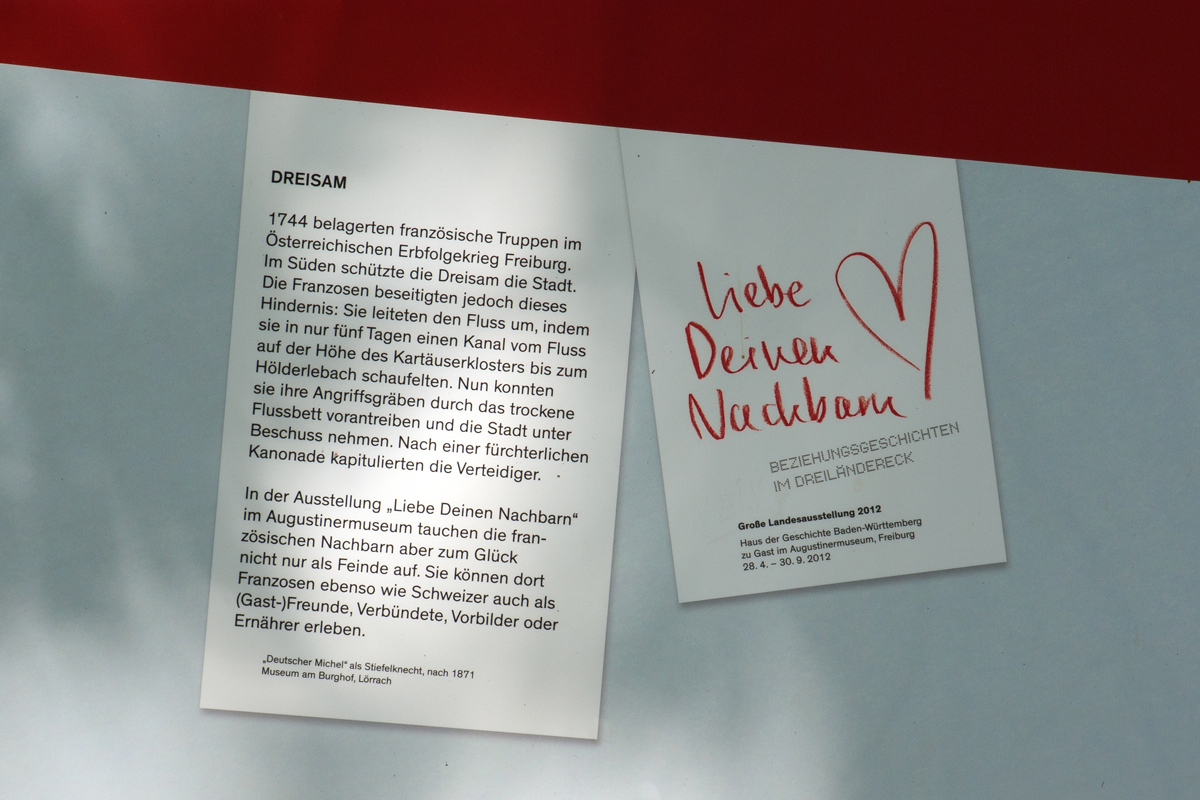 DREISAM
1744 belagerten französische Truppen im
Österreichischen Erbfolgekrieg Freiburg.
Im Süden schützte die Dreisam die Stadt.
Die Franzosen beseitigten jedoch dieses
Hindernis: Sie leiteten den Fluss um, indem
sie in nur fünf Tagen einen Kanal vom Fluss
auf der Höhe des Kartäuserklosters bis zum
Hölderlebach schaufelten. Nun konnten
sie ihre Angriffsgräben durch das trockene
Flussbett vorantreiben und die Stadt unter
Beschuss nehmen. Nach einer fürchterlichen
Kanonade kapitulierten die Verteidiger.
In der Ausstellung „Liebe Deinen Nachbarn“
im Augustinermuseum tauchen die fran-
zösischen Nachbarn aber zum Glück
nicht nur als Feinde auf. Sie können dort
Franzosen ebenso wie Schweizer auch als
(Gast-)Freunde, Verbündete, Vorbilder oder
Ernährer erleben.
„Deutscher Michel“ als Stiefelknecht, nach 1871
Museum am Burghof, Lörrach
Liebe
Deinen
Nachbarn
BEZIEHUNGSGESCHICHTEN
IM DREILÄNDERECK
Große Landesausstellung 2012
Haus der Geschichte Baden-Württemberg
zu Gast im Augustinermuseum, Freiburg
28. 4. – 30. 9. 2012